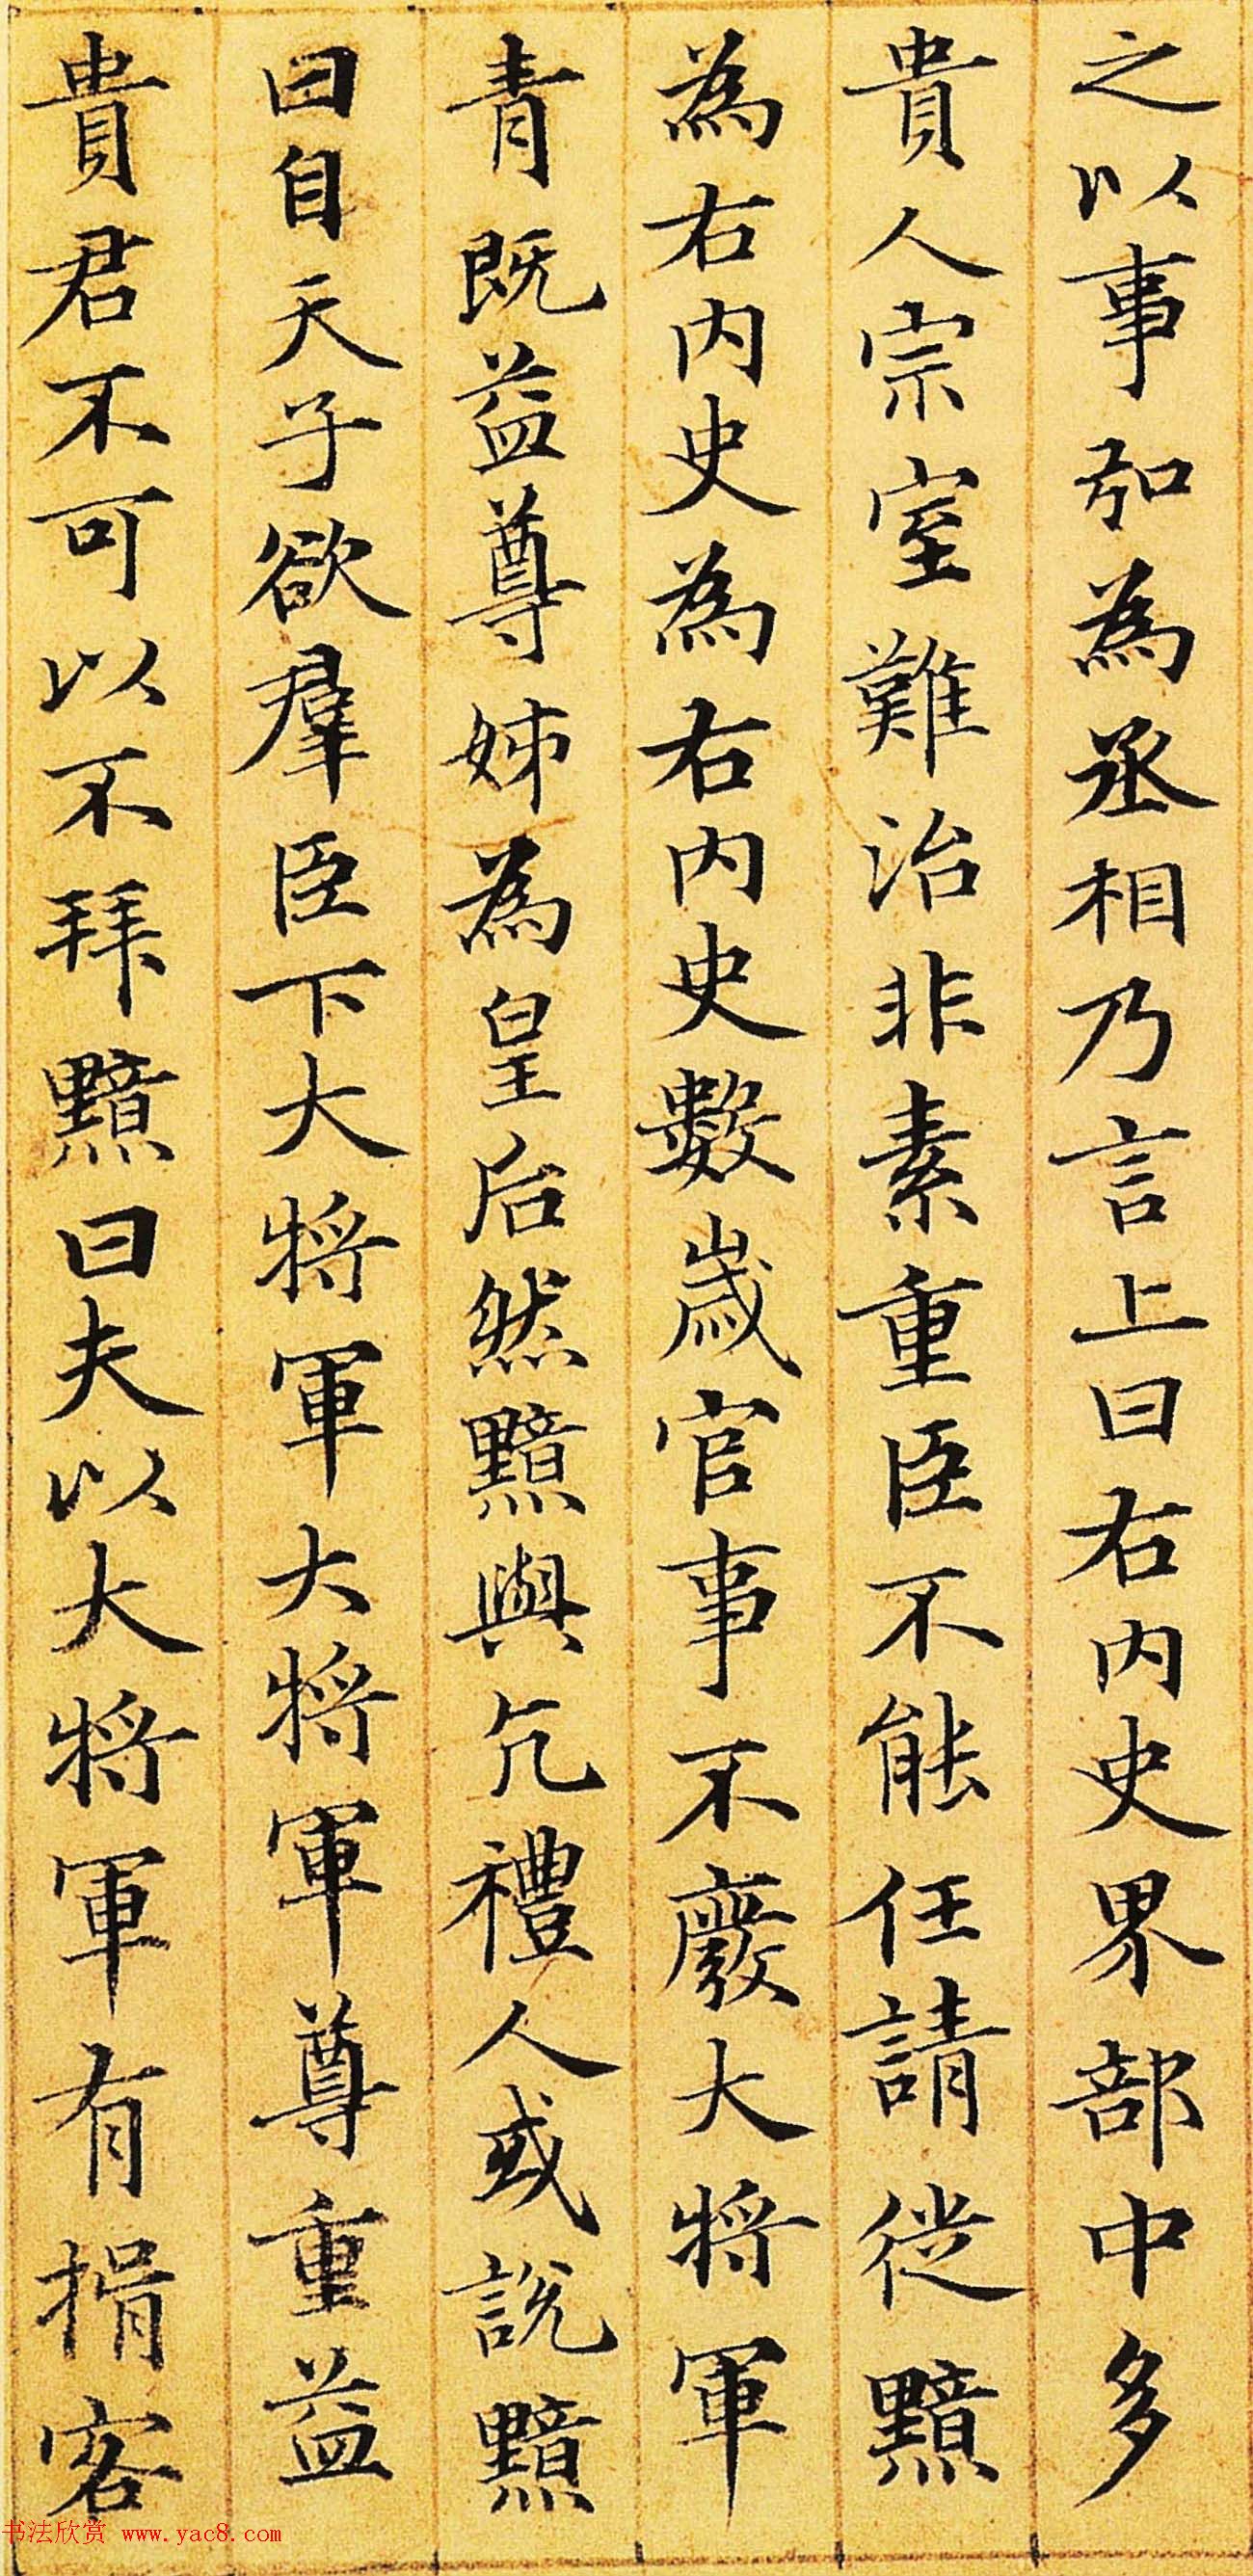 之以事弘為丞相乃言上曰右内史界部中多
貴人宗室難治非素重臣不能任請徙黯
為右内史為右内史數歲官事不廢大將軍
青既益尊姊為皇后然黯與亢禮人或說黯
曰自天子欲羣臣下大將軍大將軍尊重益
貴君不可以不拜黯曰夫以大將軍有揖客
书法欣赏 www.yac8.com